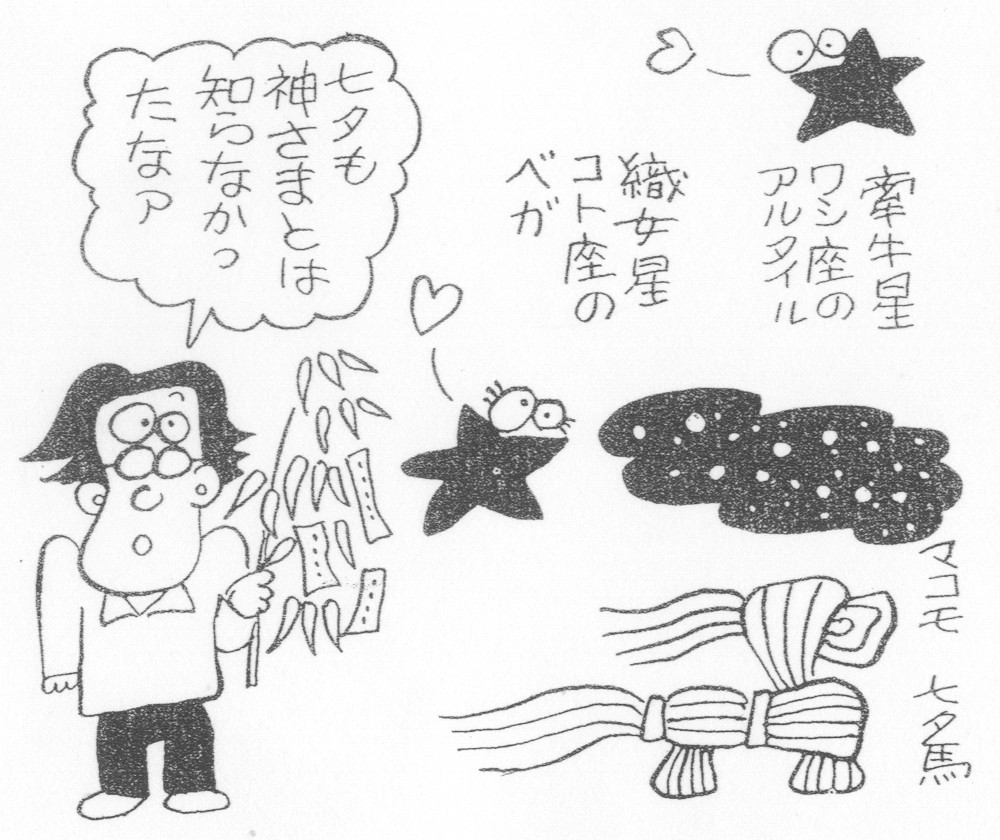 七夕も
神さまとは
知らなかっ
たなァ
牽牛星
ワシ座の
アルタイル
織女星
コト座の
ベガ
マコモ 七夕馬